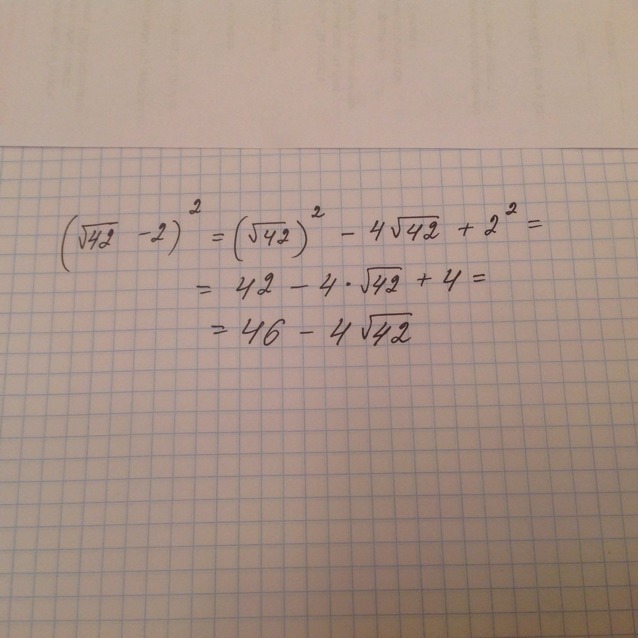 (√42 - 2)² = (√42)² - 4√42 + 2² =
= 42 - 4 · √42 + 4 =
= 46 - 4√42